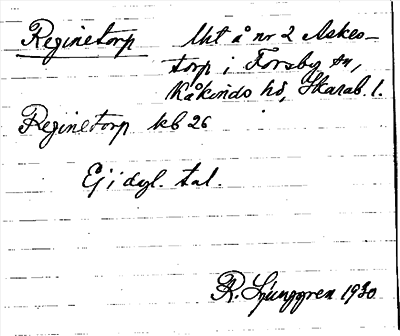 Reginetorp Utt å nr 2 Askes-
torp i Forsby sn,
Kåkinds hd, Skarab. l.
Reginetorp kb 26
Ej i dyl. tal.
R. Ljunggren 1930